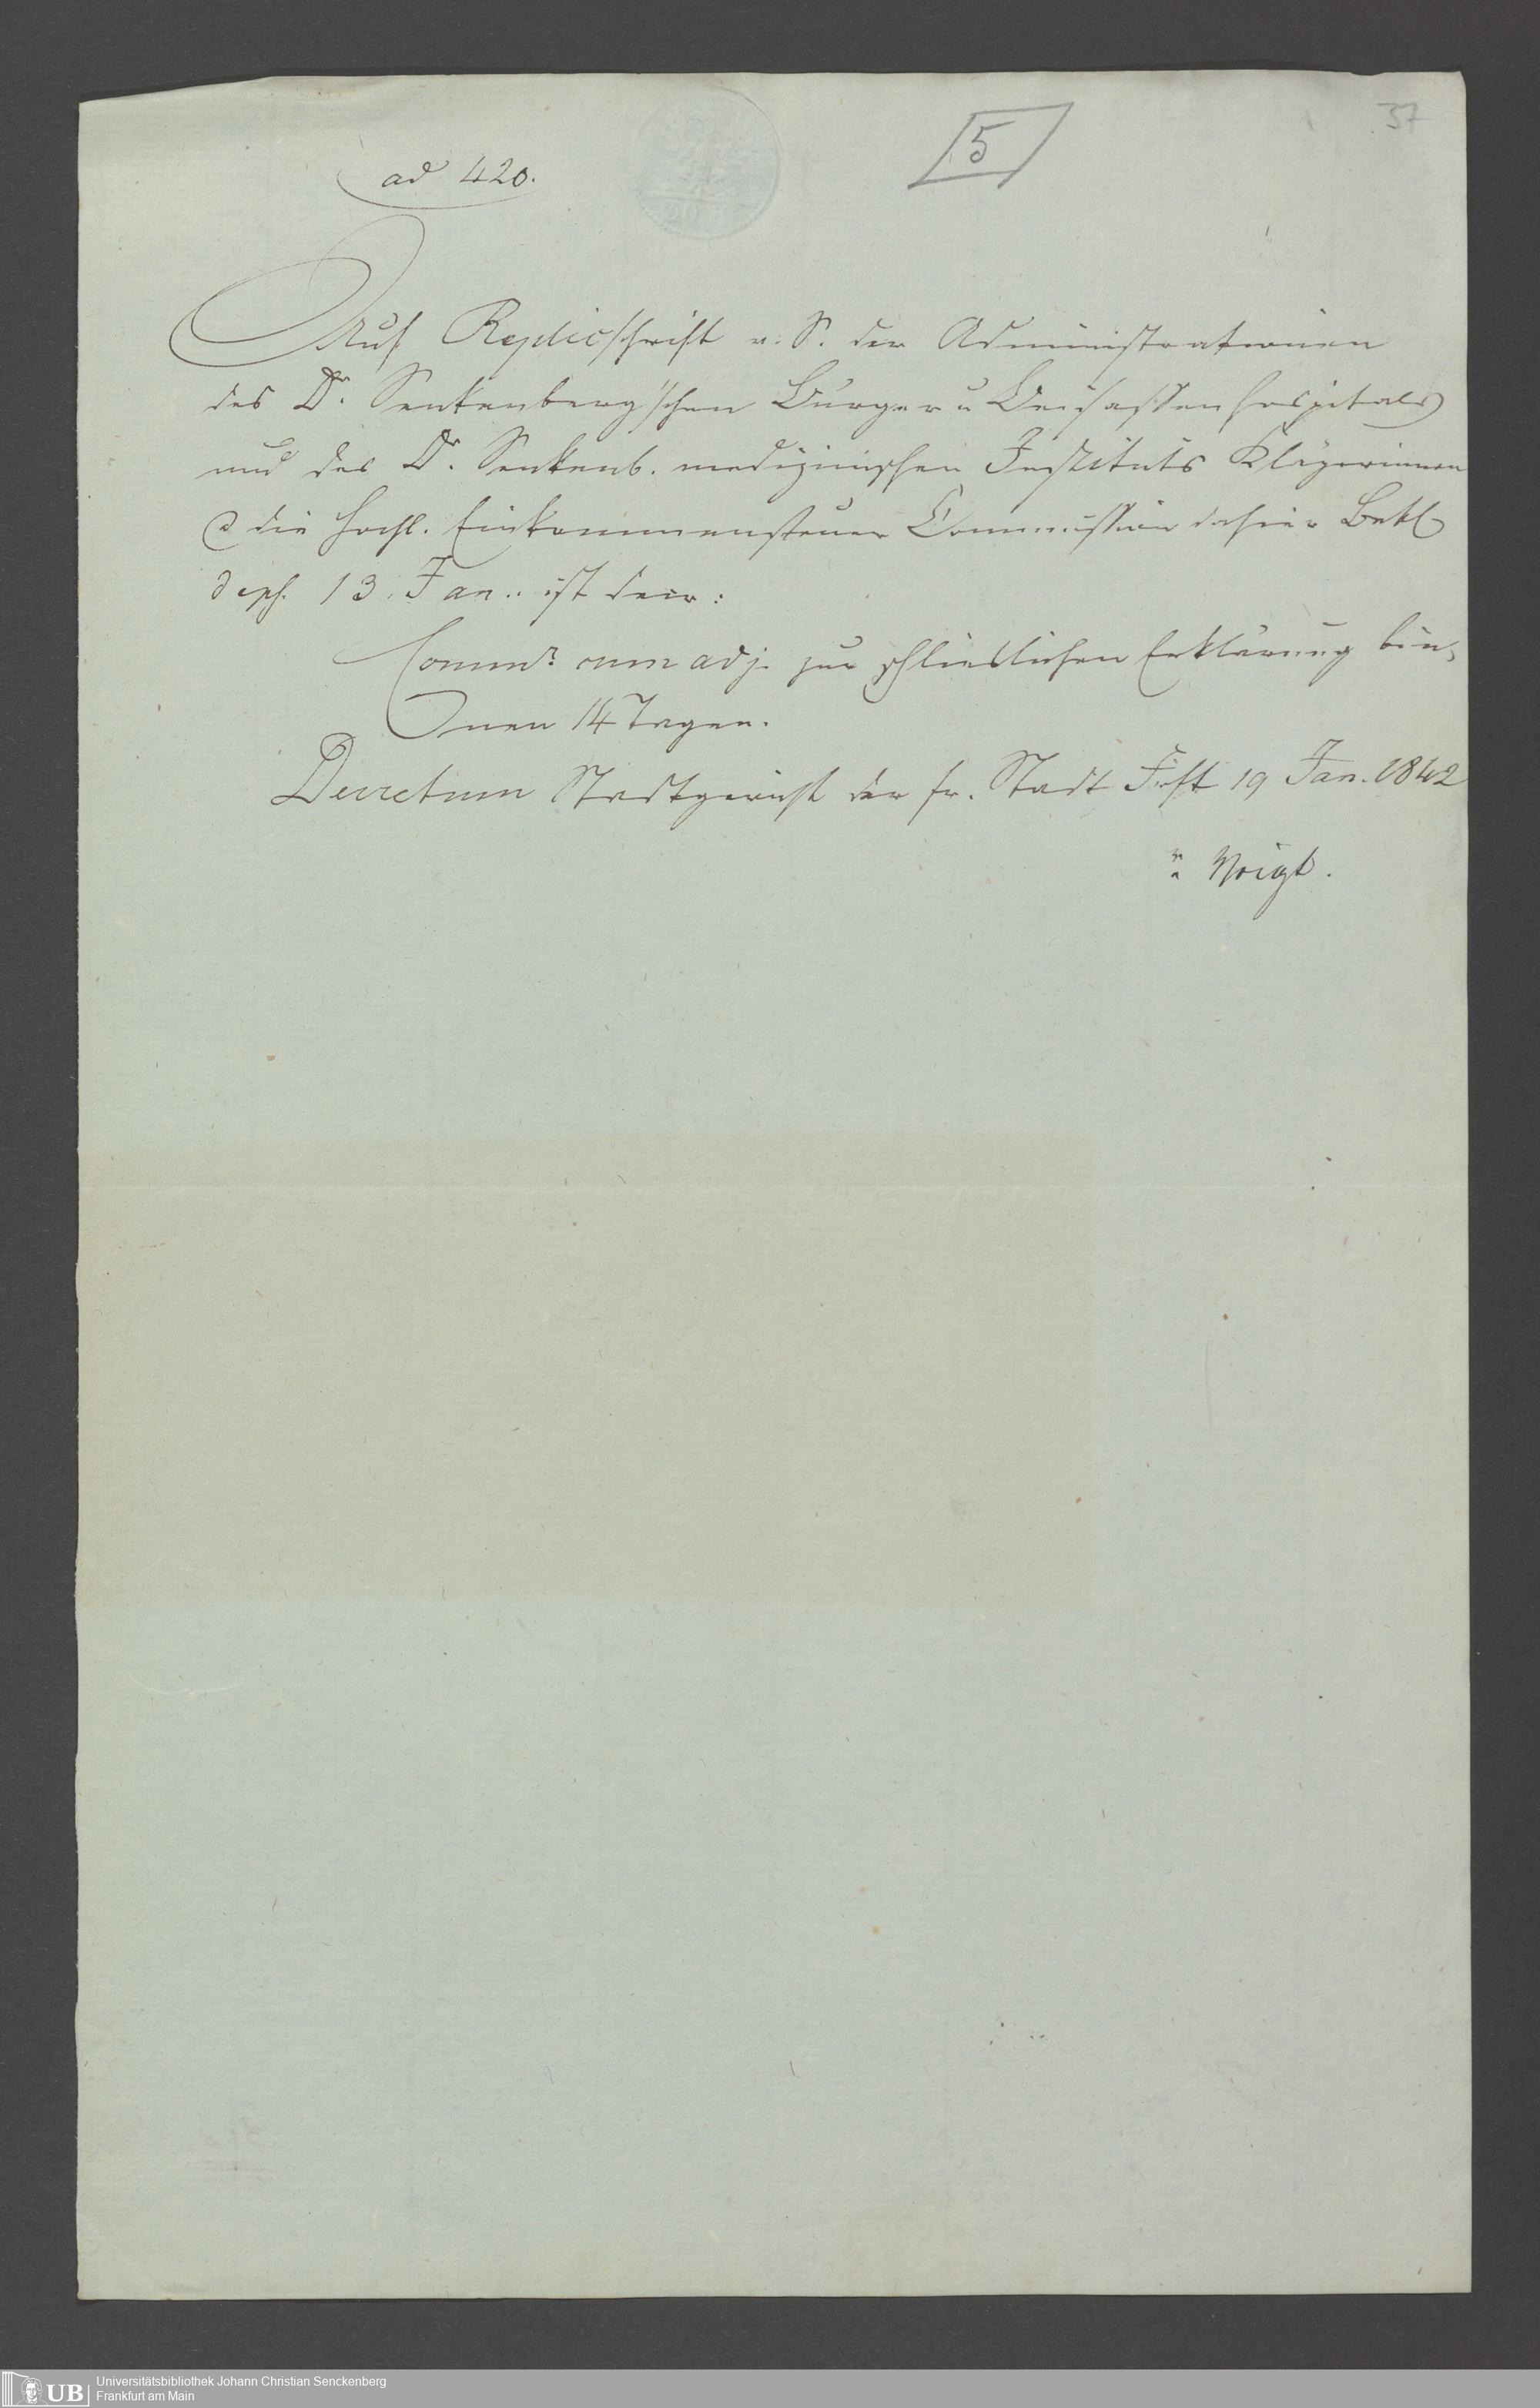 37
5
ad 420.
Auf Replicschrift v. S. der Administrationen
des Dr. Senkenberg'schen Bürger u Beisassenhospitals
und des Dr. Senkenb. medizinischen Instituts Klägerinnen
die hochl. Einkommensteuer Commission dahier Bekl
13. Jan. ist decr:
Commr. cum adj. zur schließlichen Erklärung bin-
nen 14 Tagen.
Decretum Stadtgericht der fr. Stadt Frft 19 Jan. 1842
Voigt.
UB
Universitätsbibliothek Johann Christian Senckenberg
Frankfurt am Main